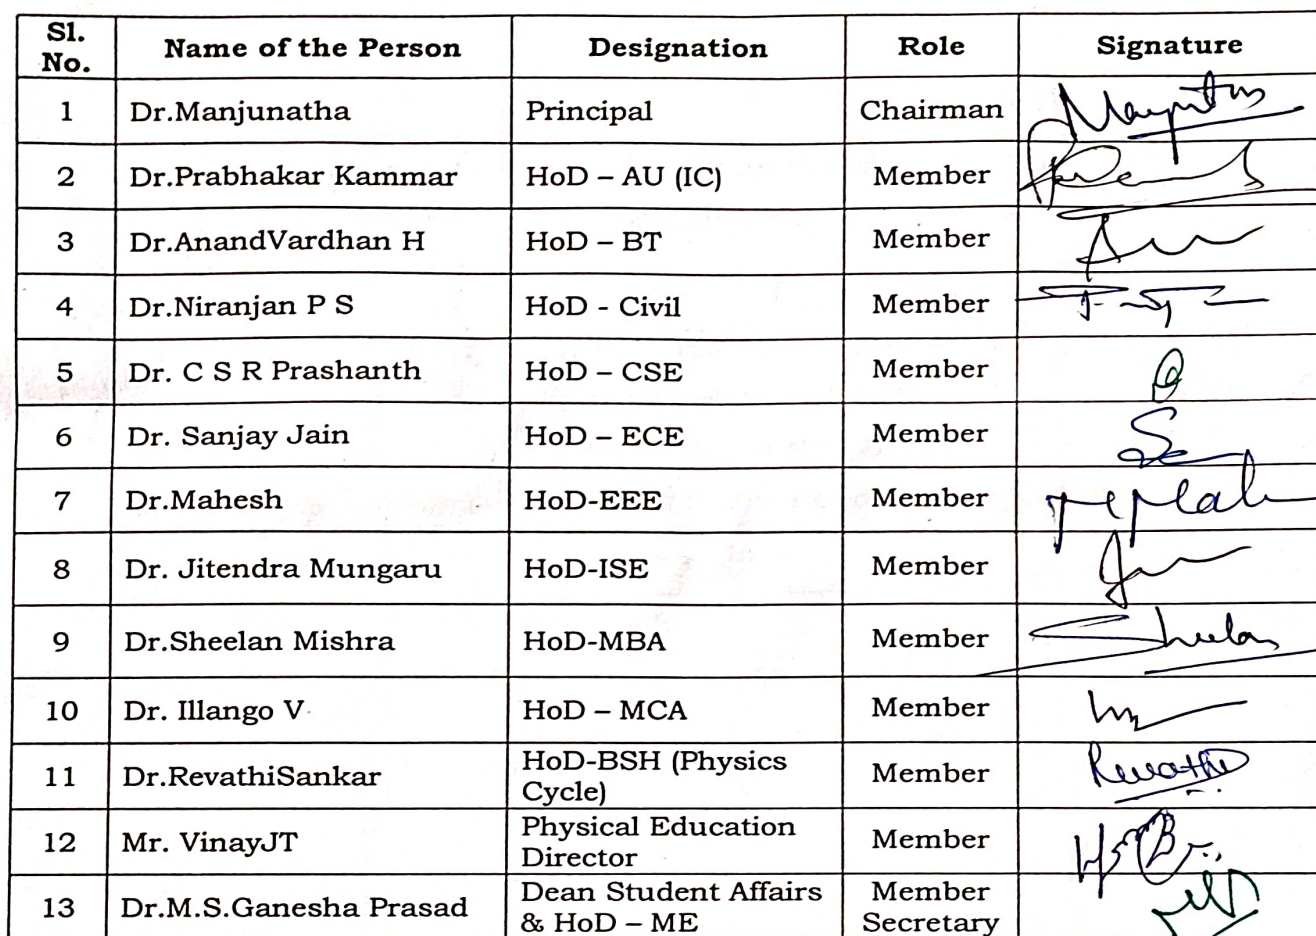 Sl. No. Name of the Person Designation Role Signature
1 Dr.Manjunatha Principal Chairman
2 Dr.Prabhakar Kammar HoD – AU (IC) Member
3 Dr.AnandVardhan H HoD – BT Member
4 Dr.Niranjan P S HoD - Civil Member
5 Dr. C S R Prashanth HoD – CSE Member
6 Dr. Sanjay Jain HoD – ECE Member
7 Dr.Mahesh HoD-EEE Member
8 Dr. Jitendra Mungaru HoD-ISE Member
9 Dr.Sheelan Mishra HoD-MBA Member Sheelan
10 Dr. Illango V HoD – MCA Member
11 Dr.RevathiSankar HoD-BSH (Physics Cycle) Member Revathi
12 Mr. VinayJT Physical Education Director Member
13 Dr.M.S.Ganesha Prasad Dean Student Affairs & HoD – ME Member Secretary